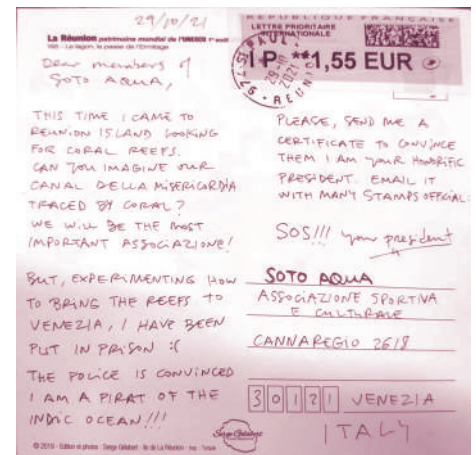 29/10/21
La Réunion patrimoine mondial de l'UNESCO
Le lagon, la passe de l'Ermitage
Dear members of
SOTO AQUA,
THIS TIME I CAME TO
REUNION ISLAND LOOKING
FOR CORAL REEFS.
CAN YOU IMAGINE OUR
CANAL DELLA MISERICORDIA
TRACED BY CORAL?
WE WILL BE THE MOST
IMPORTANT ASSOCIAZIONE!
BUT, EXPERIMENTING HOW
TO BRING THE REEFS TO
VENEZIA, I HAVE BEEN
PUT IN PRISON :(
THE POLICE IS CONVINCED
I AM A PIRAT OF THE
INDIC OCEAN!!!
© 2019 - Edition et photos : Serge Gélabert - Ile de La Réunion
Serge Gélabert
REPUBLIQUE FRANCAISE
LETTRE PRIORITAIRE
INTERNATIONALE
IP **1,55 EUR
ST PAUL
29-10
2021
REUNION
PLEASE, SEND ME A
CERTIFICATE TO CONVINCE
THEM I AM YOUR HONORIFIC
PRESIDENT. EMAIL IT
WITH MANY STAMPS OFFICIAL.
SOS!!! your president
SOTO AQUA
ASSOCIAZIONE SPORTIVA
E CULTURALE
CANNAREGIO 2618
30121 VENEZIA
ITALY